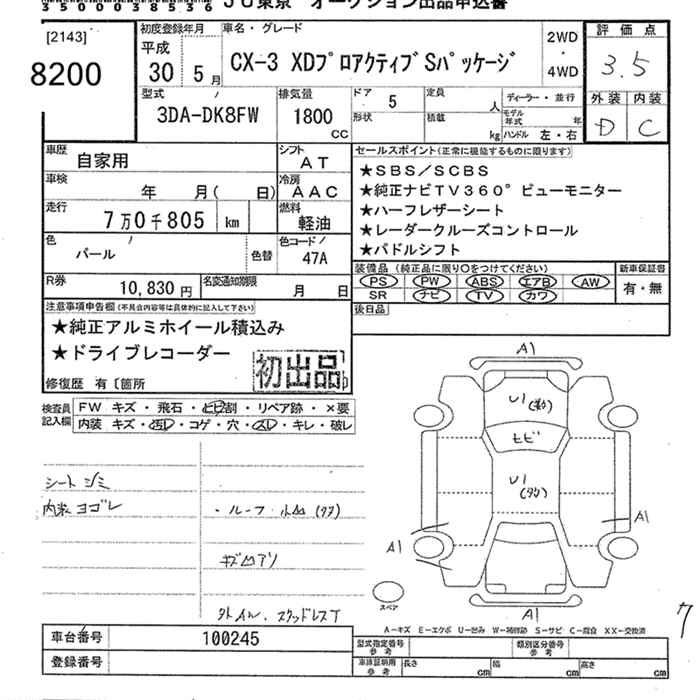 35000038536 JU東京 オークション出品申込書
[2143]
8200
初度登録年月
平成
30 5月
車名・グレード
CX-3 XDプロアクティブ Sパッケージ
2WD
4WD
評価点
3.5
型式
3DA-DK8FW
排気量
1800
CC
ドア
5
形状
定員
人
積載
kg
ディーラー・並行
モデル年式 年
ハンドル 左・右
外装 内装
D C
車歴
自家用
シフト
AT
車検
年 月( 日)
冷房
AAC
走行
7万0千805 km
燃料
軽油
色
パール
色替
色コード
47A
R券
10,830円
名変通知期限
月 日
セールスポイント(正常に機能するものに限ります)
★SBS/SCBS
★純正ナビTV360°ビューモニター
★ハーフレザーシート
★レーダークルーズコントロール
★パドルシフト
装備品 (純正品に限り○をつけてください)
PS PW ABS エアB AW
SR ナビ TV カワ
新車保証書
有・無
後日品
注意事項申告欄(不具合内容等は具体的に記入して下さい)
★純正アルミホイール積込み
★ドライブレコーダー
初出品
修復歴 有〔箇所
検査員記入欄
FW キズ・飛石・ヒビ割・リペア跡・×要
内装 キズ・汚れ・コゲ・穴・スレ・キレ・破レ
シートシミ
内装ヨゴレ
・ルーフ 小凹(タタ)
キズ凹アリ
外AW、スタッドレスT
A1
U1
ヒビ
U1
A1
A1
A1
スペア
7
A-キズ E-エクボ U-凹み W-補修跡 S-サビ C-腐食 XX-交換済
車台番号 100245
登録番号
型式指定番号
参考
類別区分番号
参考
車庫証明用
参考
長さ cm
幅 cm
高さ cm